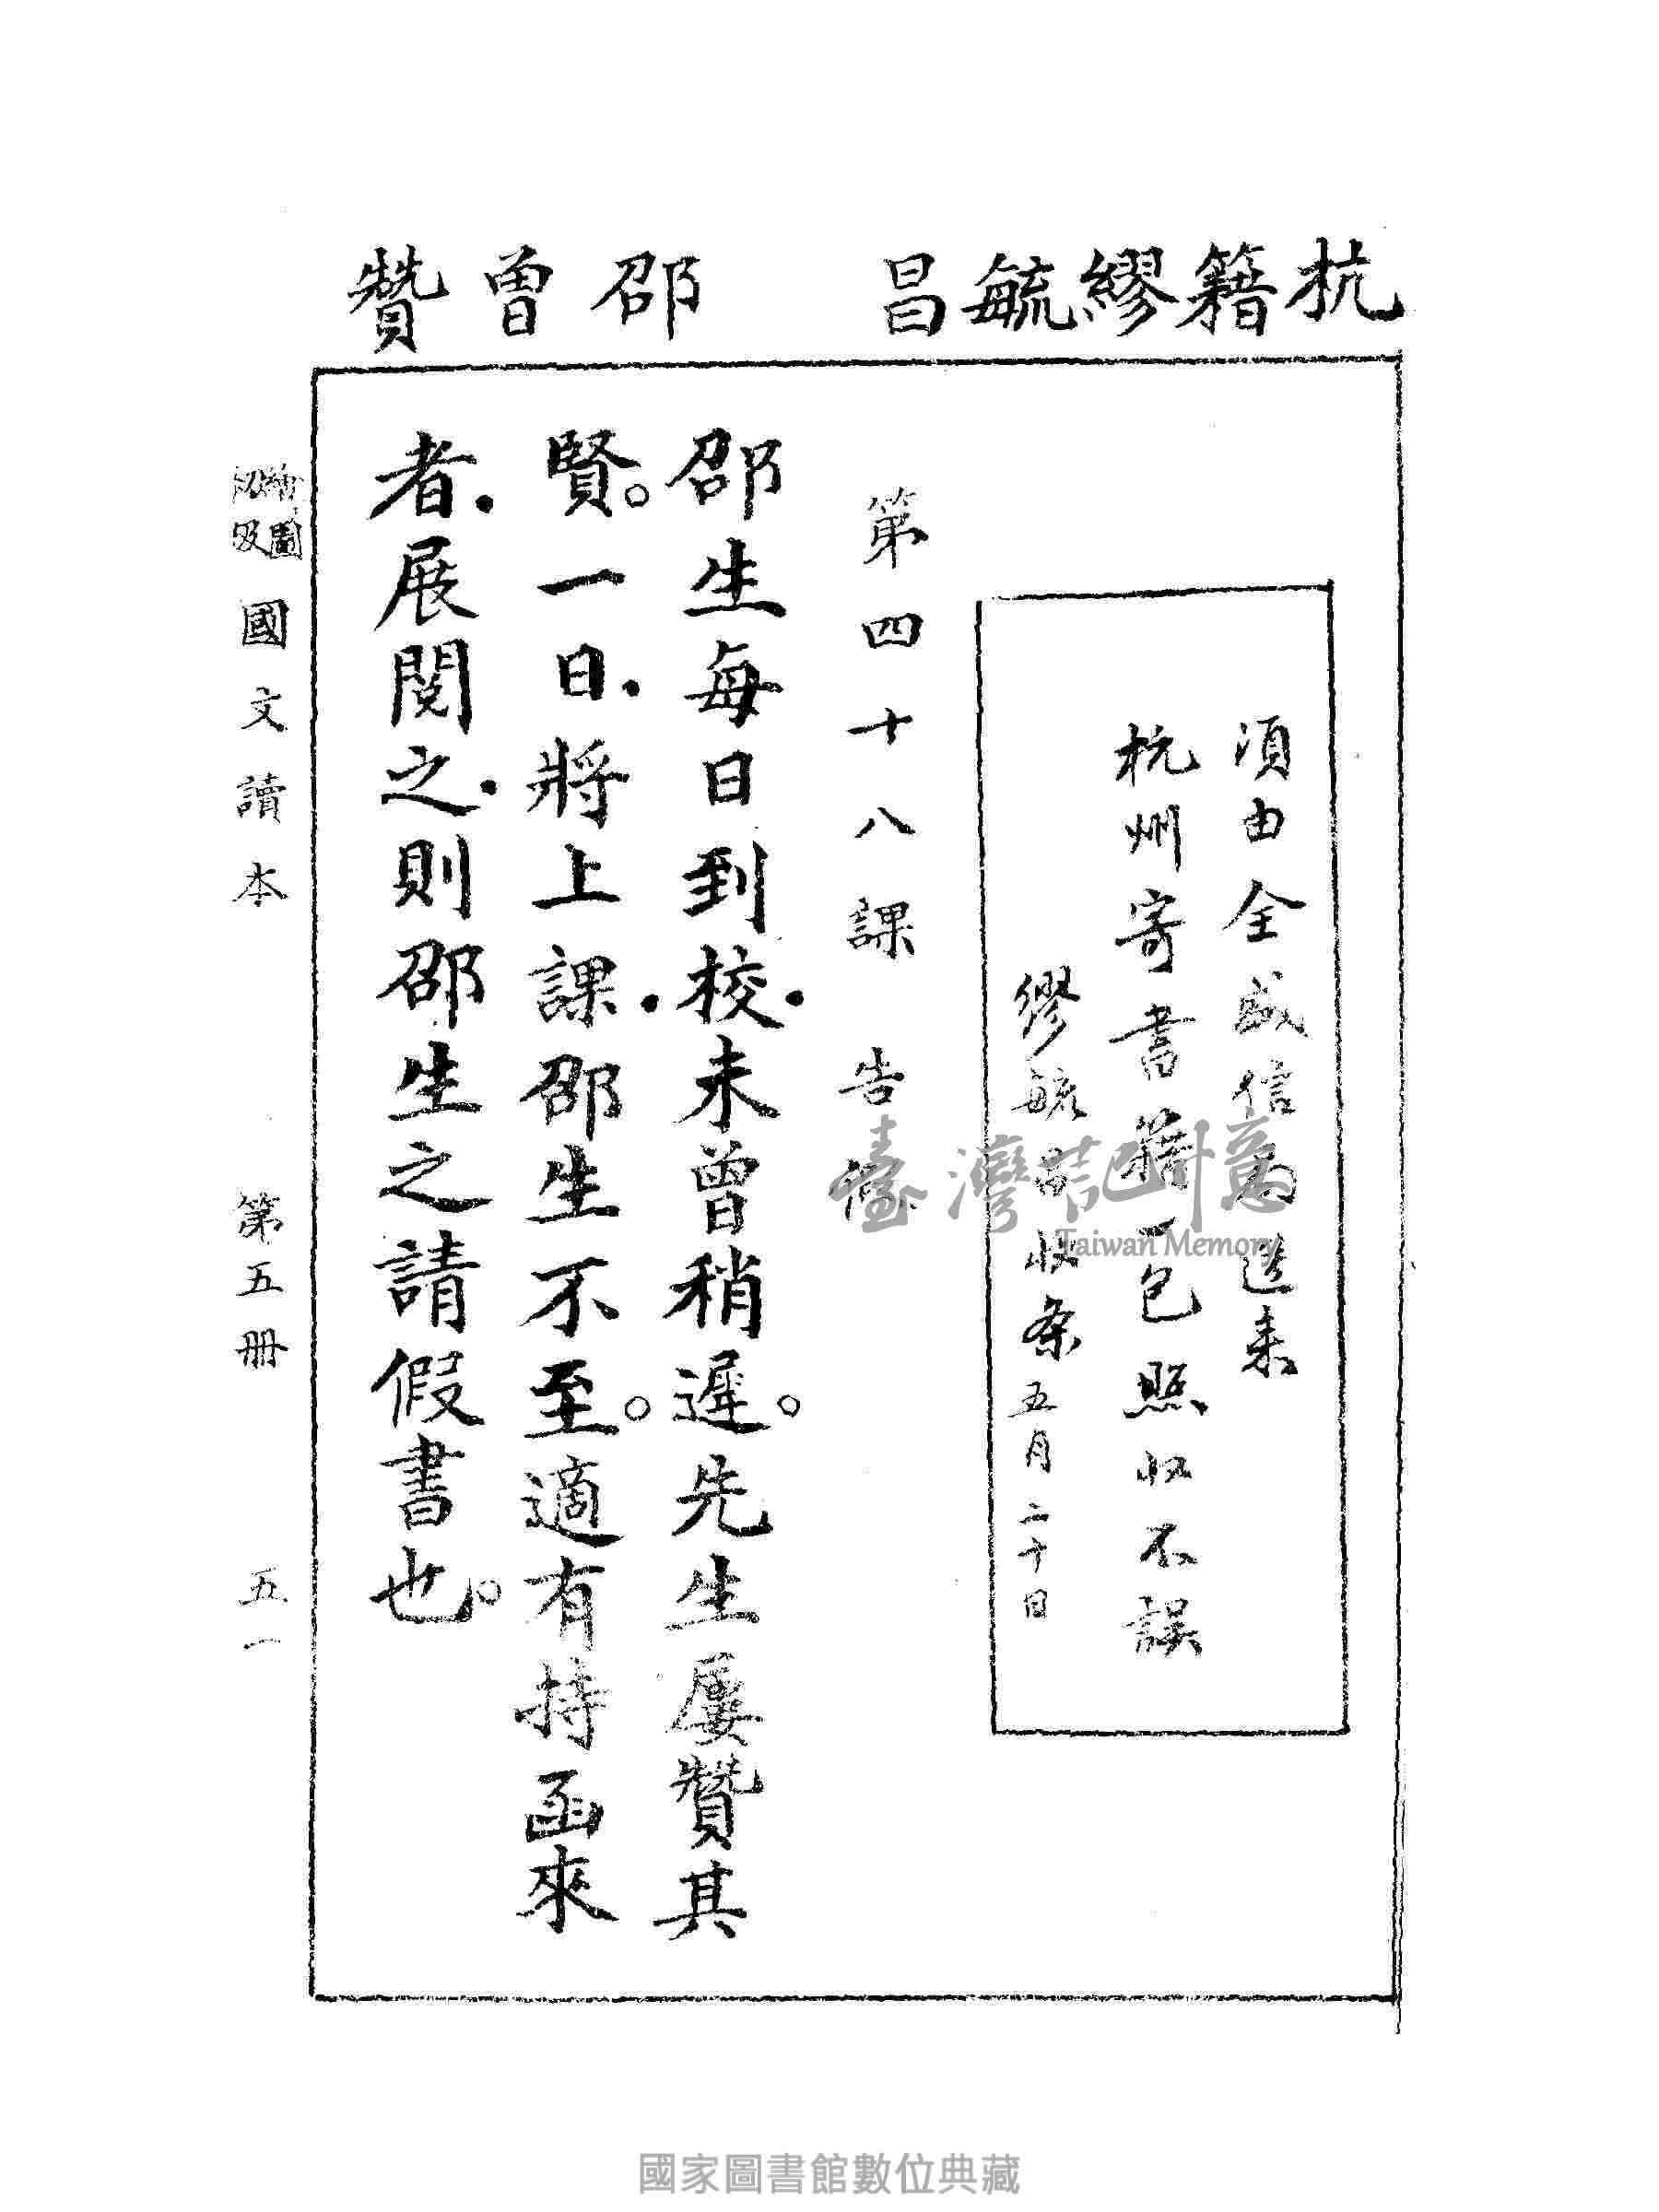 杭籍繆毓昌 邵曾贊
頃由全盛信局送来
杭州寄書籍一包照收不誤
繆毓昌收条 五月二十日
第四十八課 告假
邵生每日到校．未曾稍遲。先生屢贊其
賢。一日．將上課．邵生不至。適有持函來
者．展閱之．則邵生之請假書也。
繪圖初級國文讀本 第五冊 五一
臺灣記憶
Taiwan Memory
國家圖書館數位典藏